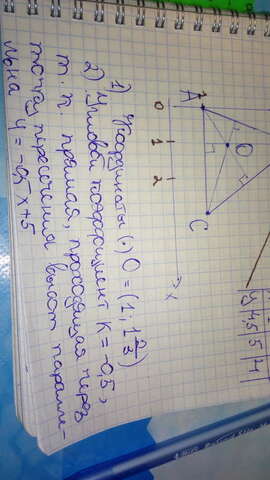 A
O
C
0
1
2
x
y 4,5 5 4
1) Координаты (•) O = (1; 1 2/3)
2) Угловой коэффициент K = -0,5,
т.к. прямая, проходящая через
точку пересечения высот паралле-
льна y = -0,5x+5